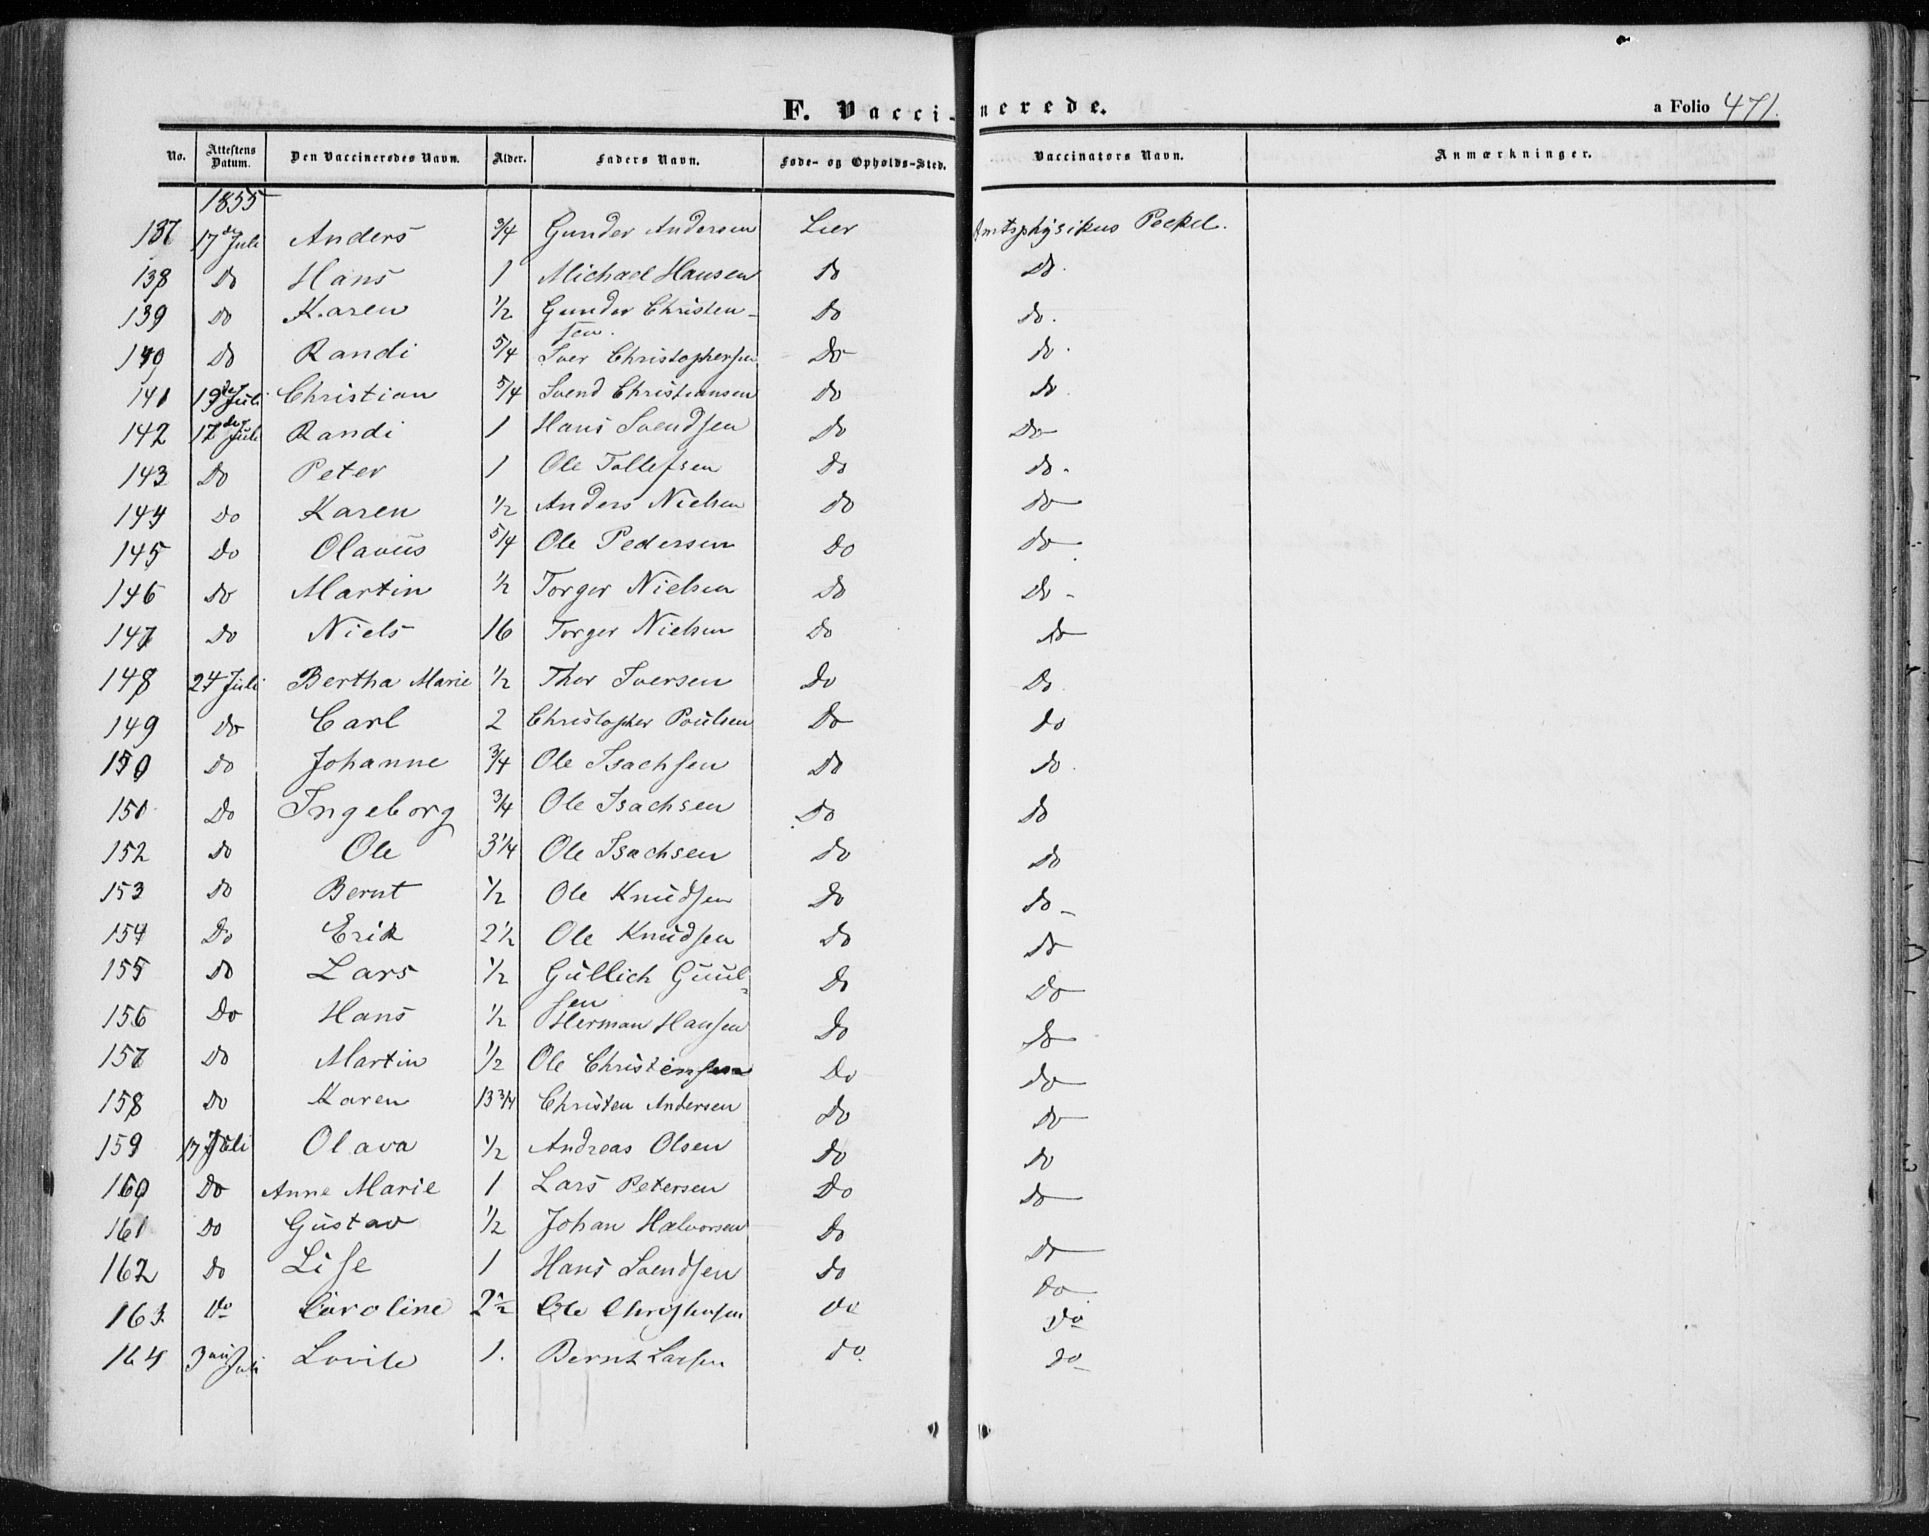 F. Vaccinerede.
a Folio 471.
No. Attestens Datum. Den Vaccineredes Navn. Alder. Faders Navn. Føde- og Opholds-Sted. Vaccinators Navn. Anmærkninger.
1855
137 17de Juli Anders 3/4 Gunder Andersen Lier Amtsphysikus Peckel.
138 Do Hans 1 Michael Hansen Do Do.
139 Do Karen 1/2 Gunder Christen- Do Do.
sen.
140 Do Randi 5/4 Iver Christophersen Do Do.
141 19de Juli Christian 5/4 Svend Christiansen Do Do
142 17de Juli Randi 1 Hans Svendsen Do Do
143 Do Peter 1 Ole Tollefsen Do Do.
144 Do Karen 1/2 Anders Nielsen Do Do
145 Do Olavus 5/4 Ole Pedersen Do Do
146 Do Martin 1/2 Torger Nielsen Do Do
147 Do Niels 16 Torger Nielsen Do Do
148 24 Juli Bertha Marie 1/2 Thor Iversen Do Do
149 Do Carl 2 Christopher Poulsen Do Do
150 Do Johanne 3/4 Ole Isachsen Do Do
151 Do Ingeborg 3/4 Ole Isachsen Do Do
152 Do Ole 3 1/4 Ole Isachsen Do Do
153 Do Bernt 1/2 Ole Knudsen Do Do
154 Do Erik 2 1/2 Ole Knudsen Do Do
155 Do Lars 1/2 Gullich Guul- Do Do
sen
156 Do Hans 1/2 Herman Hansen Do Do
157 Do Martin 1/2 Ole Christensen Do Do
158 Do Karen 13 3/4 Christen Andersen Do Do
159 17 Juli Olava 1/2 Andreas Olsen Do Do
160 Do Anne Marie 1 Lars Petersen Do Do
161 Do Gustav 1/2 Johan Halvorsen Do Do
162 Do Lise 1 Hans Svendsen Do Do
163 Do Caroline 2 1/2 Ole Christensen Do Do
164 Juli 1. Bernt Larsen Do. Do